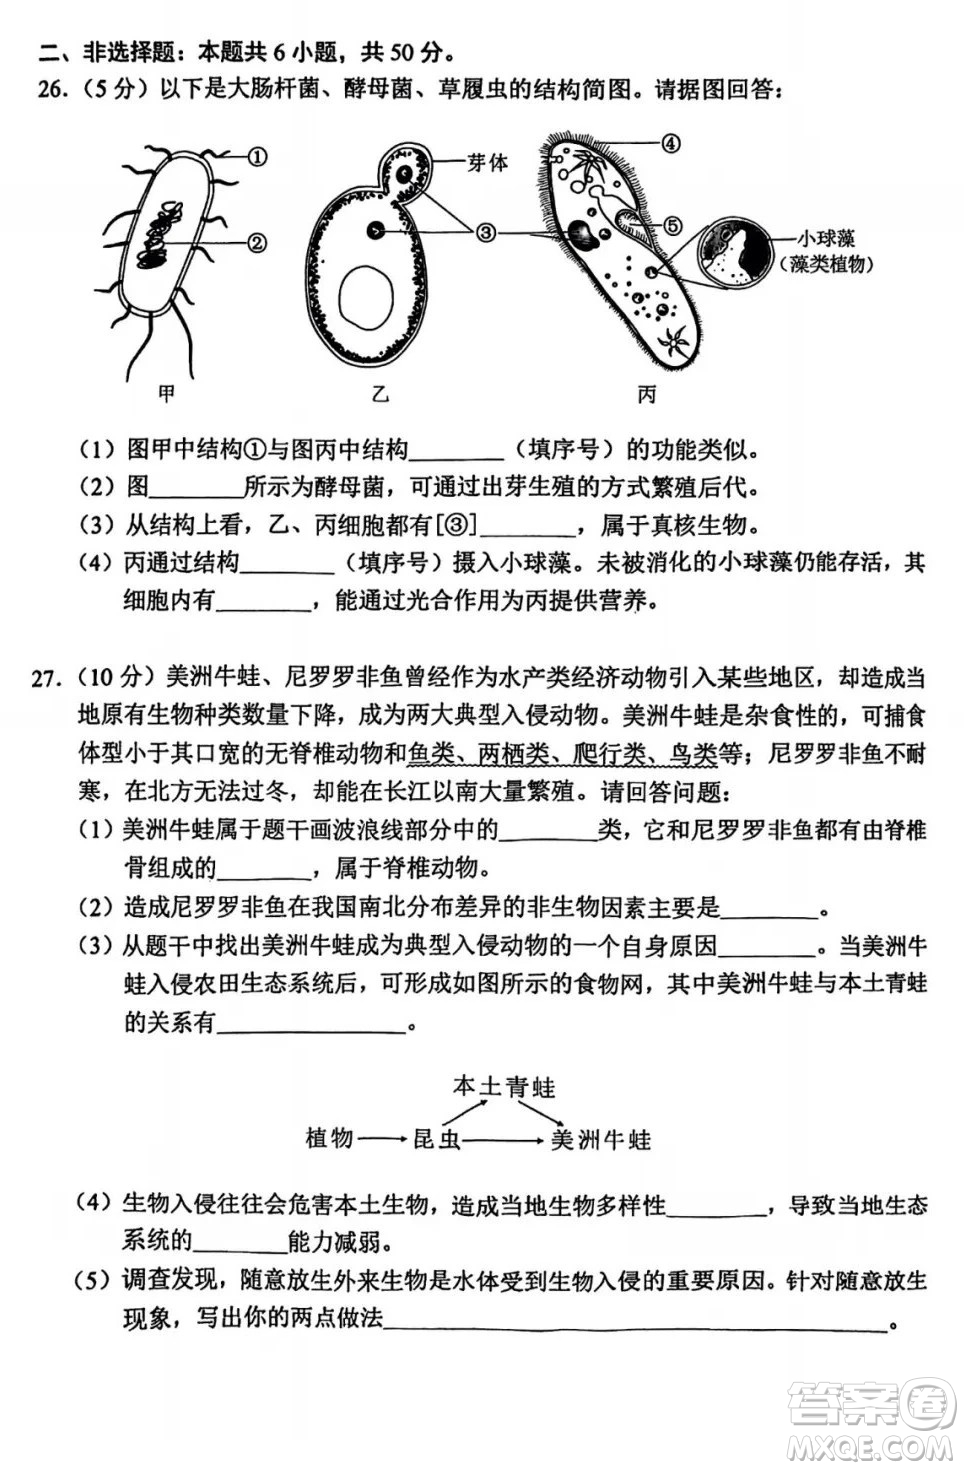 二、非选择题：本题共 6 小题，共 50 分。
26.（5 分）以下是大肠杆菌、酵母菌、草履虫的结构简图。请据图回答：
① ② 芽体 ③ ④ ⑤ 小球藻
（藻类植物）
甲 乙 丙
（1）图甲中结构①与图丙中结构________（填序号）的功能类似。
（2）图________所示为酵母菌，可通过出芽生殖的方式繁殖后代。
（3）从结构上看，乙、丙细胞都有[③]________，属于真核生物。
（4）丙通过结构________（填序号）摄入小球藻。未被消化的小球藻仍能存活，其
细胞内有________，能通过光合作用为丙提供营养。
27.（10 分）美洲牛蛙、尼罗罗非鱼曾经作为水产类经济动物引入某些地区，却造成当
地原有生物种类数量下降，成为两大典型入侵动物。美洲牛蛙是杂食性的，可捕食
体型小于其口宽的无脊椎动物和鱼类、两栖类、爬行类、鸟类等；尼罗罗非鱼不耐
寒，在北方无法过冬，却能在长江以南大量繁殖。请回答问题：
（1）美洲牛蛙属于题干画波浪线部分中的________类，它和尼罗罗非鱼都有由脊椎
骨组成的________，属于脊椎动物。
（2）造成尼罗罗非鱼在我国南北分布差异的非生物因素主要是________。
（3）从题干中找出美洲牛蛙成为典型入侵动物的一个自身原因________。当美洲牛
蛙入侵农田生态系统后，可形成如图所示的食物网，其中美洲牛蛙与本土青蛙
的关系有________________。
本土青蛙
植物 昆虫 美洲牛蛙
（4）生物入侵往往会危害本土生物，造成当地生物多样性________，导致当地生态
系统的________能力减弱。
（5）调查发现，随意放生外来生物是水体受到生物入侵的重要原因。针对随意放生
现象，写出你的两点做法________________________________________。
答案卷
MXQE.COM